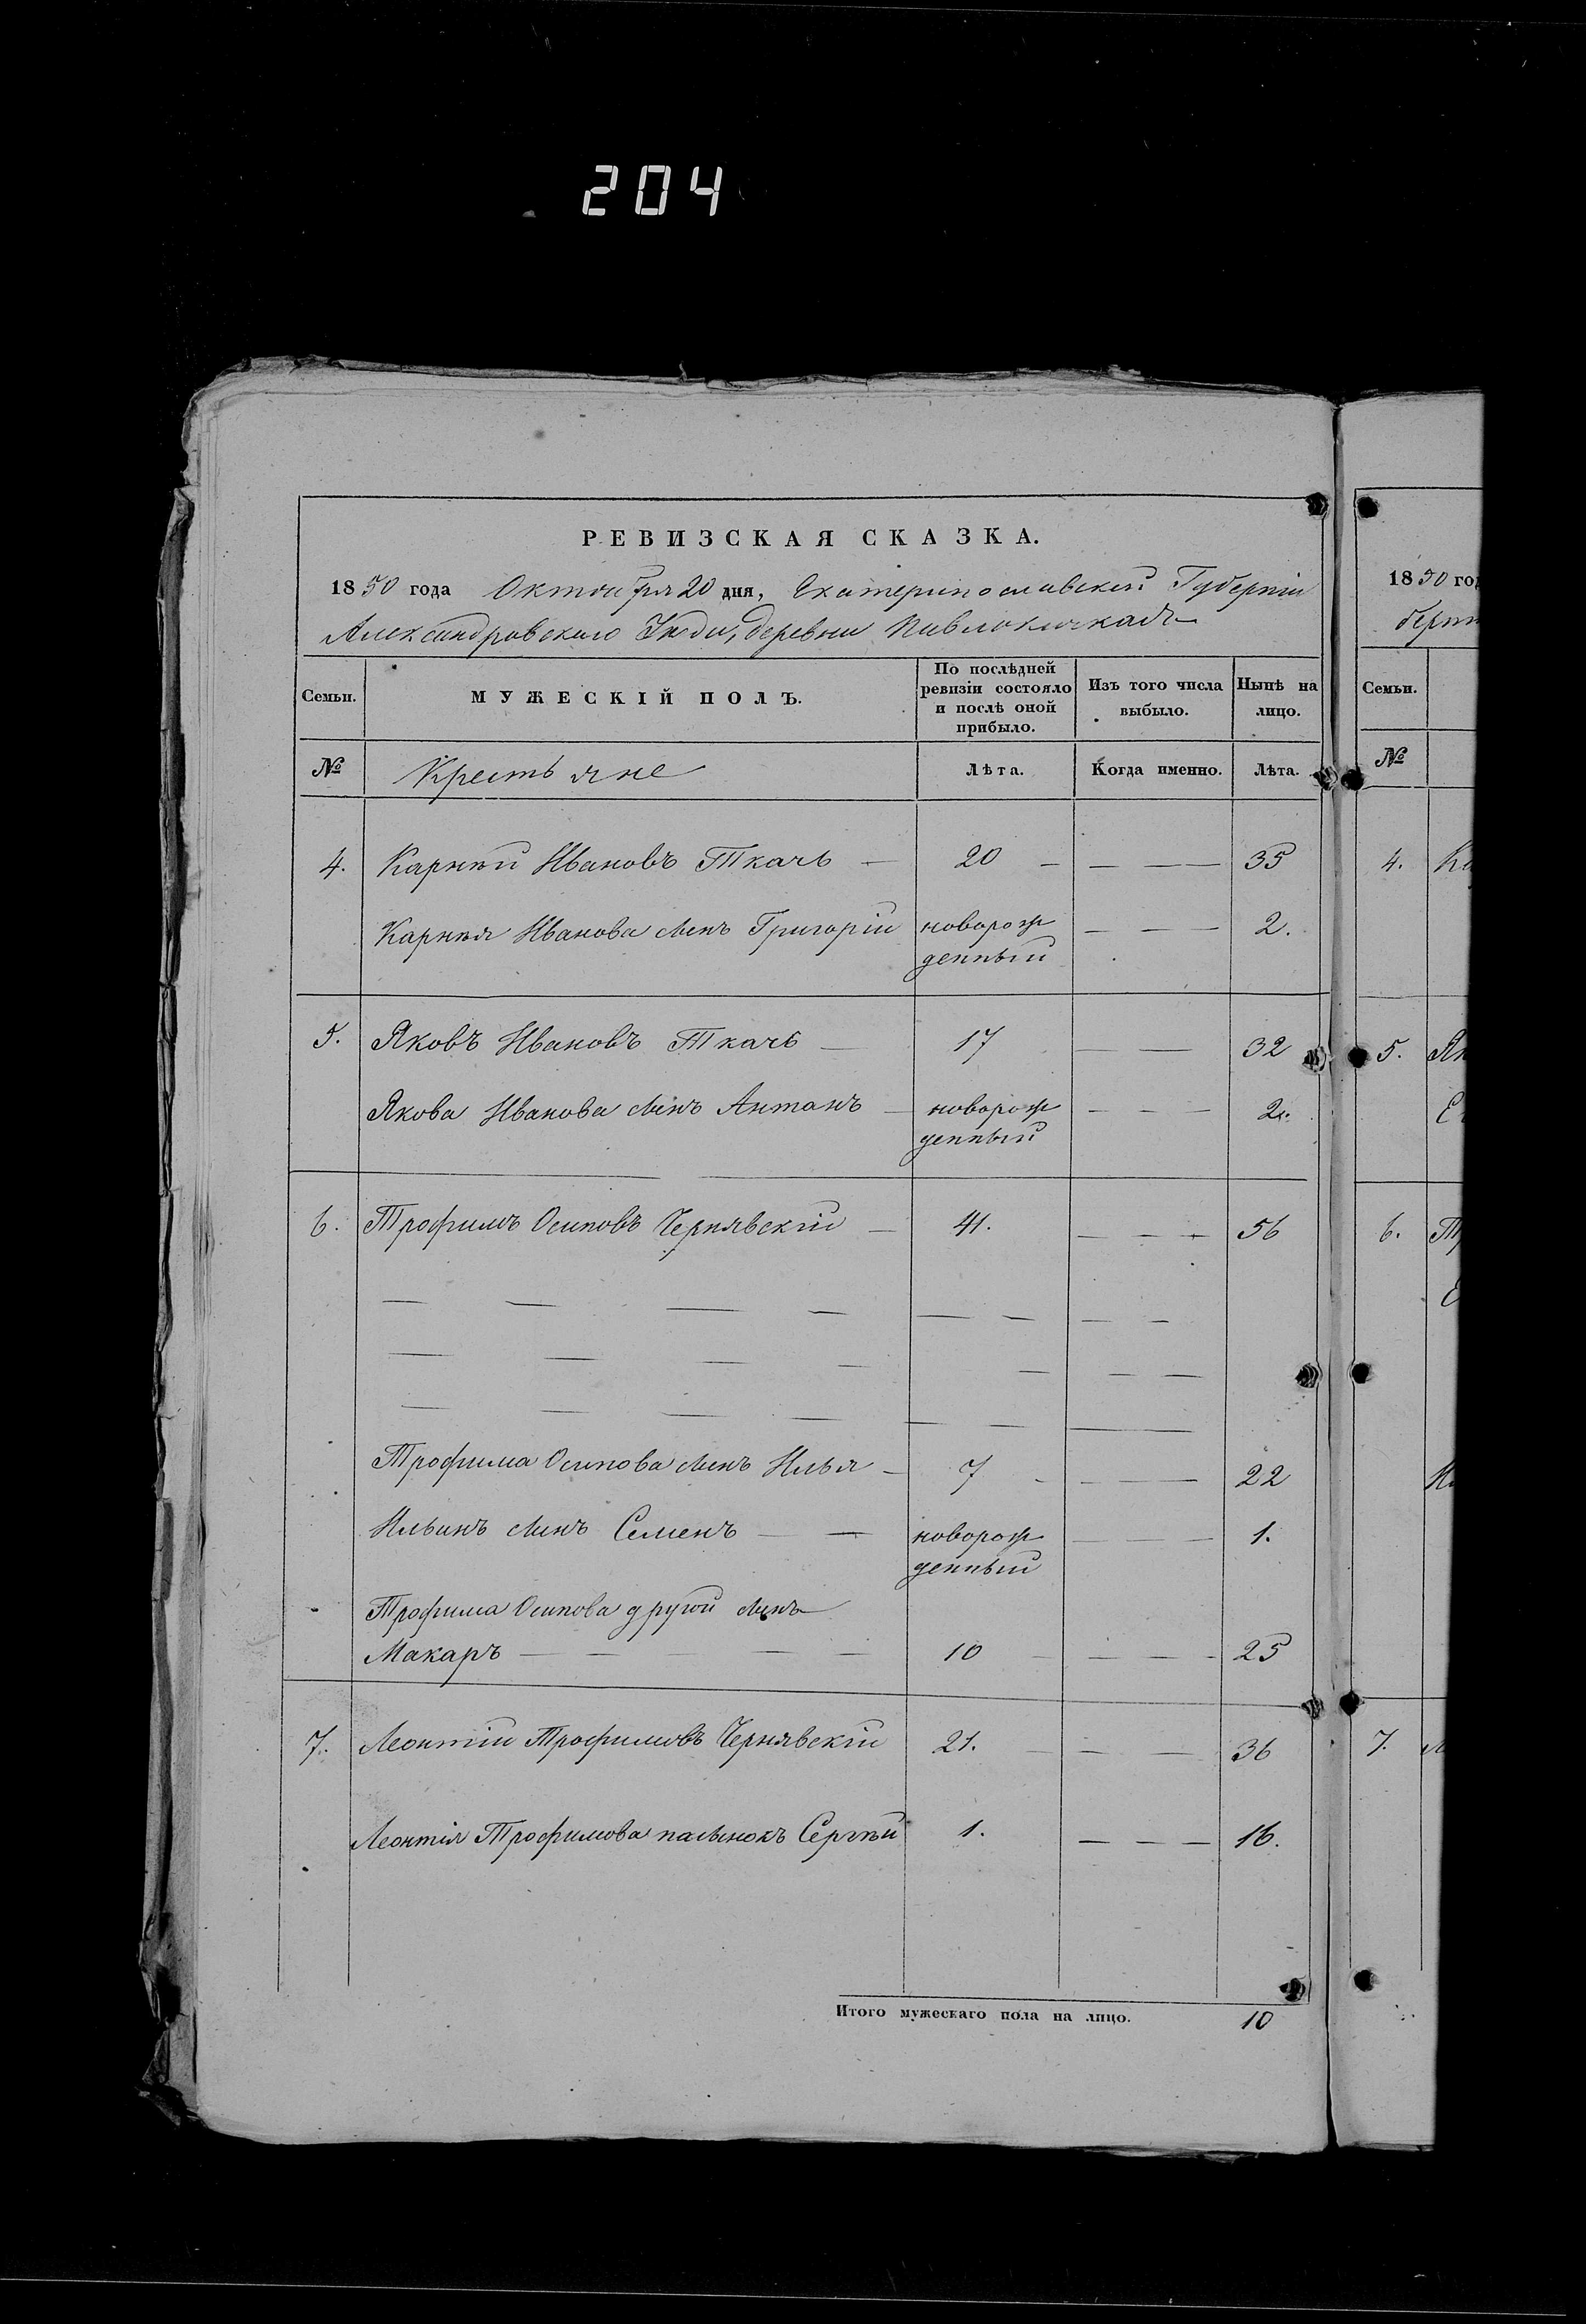 204
РЕВИЗСКАЯ СКАЗКА.
1850 года Октября 20 дня, Екатеринославской Губерніи
Александровскаго Уѣзда, деревни Павлокичкасъ
Семьи. МУЖЕСКІЙ ПОЛЪ. По послѣдней ревизіи состояло и послѣ оной прибыло. Изъ того числа выбыло. Нынѣ на лицо.
№ Крестьяне Лѣта. Когда именно. Лѣта.
4. Карнѣй Ивановъ Ткачь 20 35
Карнѣя Иванова сынъ Григорій новорож 2.
денный
5. Яковъ Ивановъ Ткачь 17 32
Якова Иванова сынъ Антанъ новорож 2.
денный
6. Трофимъ Осиповъ Чернявскій 41. 56
Трофима Осипова сынъ Илья 7 22
Ильинъ сынъ Семенъ новорож 1.
денный
Трофима Осипова другой сынъ
Макаръ 10 25
7. Леонтій Трофимовъ Чернявскій 21. 36
Леонтія Трофимова пасынокъ Сергѣй 1. 16.
Итого мужескаго пола на лицо. 10
1850 го
берн
Семьи.
№
4. Ка
5. Як
Е
6. Т
Е
7.